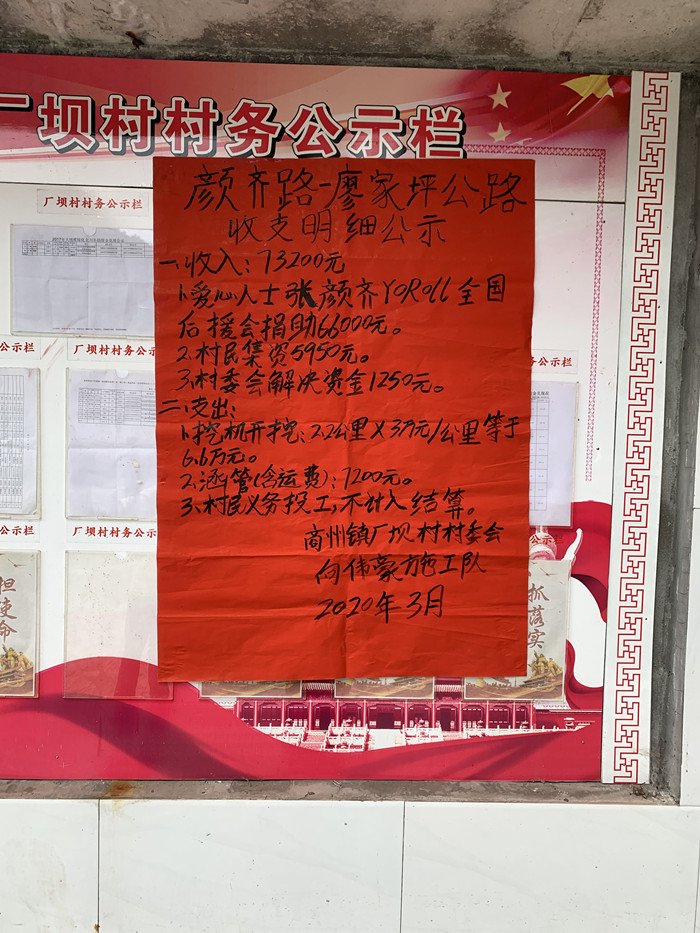 厂坝村村务公示栏
厂坝村村务公示栏
颜齐路-廖家坪公路
收支明细公示
一、收入:73200元
1.爱心人士张颜齐YoRoll全国
后援会捐助66000元。
2.村民集资5950元。
3.村委会解决资金1250元。
二、支出:
1.挖机开挖:2.2公里X3万元/公里等于
6.6万元。
2.涵管(含运费):7200元。
3、村民义务投工,不计入结算。
商州镇厂坝村村委会
向伟蒙施工队
2020年3月
公示栏
厂坝村村务公示栏
公示栏
公示栏
厂坝村村务公示栏
公示栏
担使命
抓落实